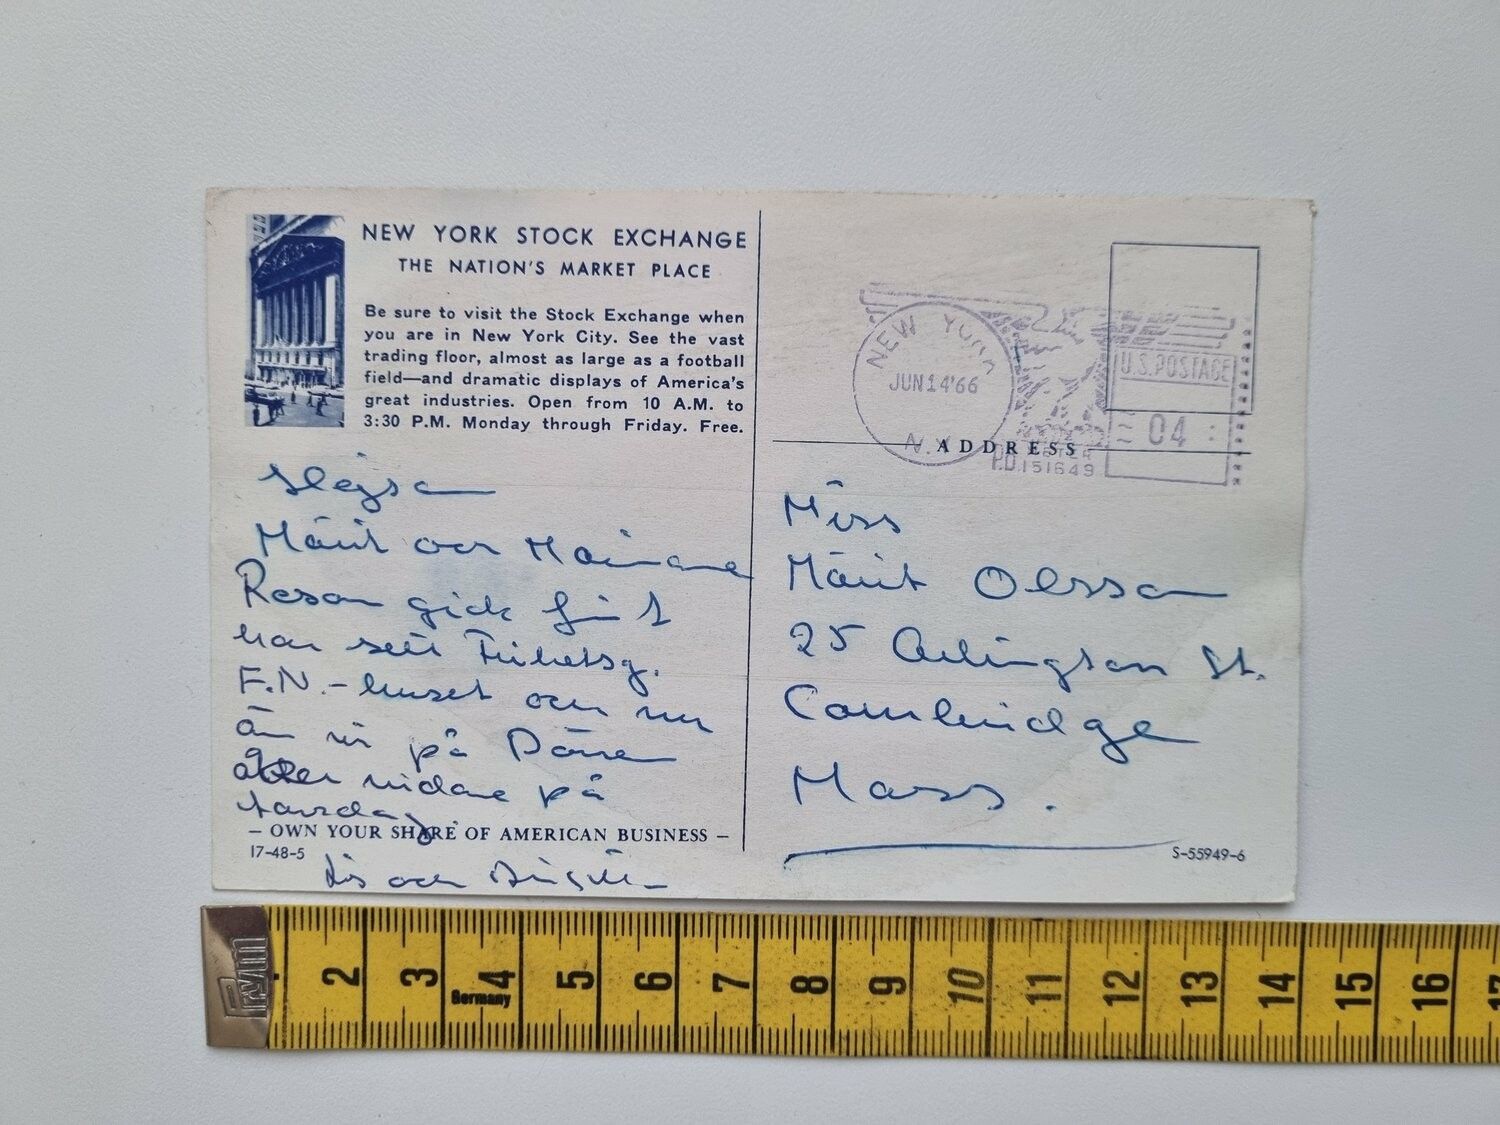 NEW YORK STOCK EXCHANGE
THE NATION'S MARKET PLACE
Be sure to visit the Stock Exchange when
you are in New York City. See the vast
trading floor, almost as large as a football
field—and dramatic displays of America's
great industries. Open from 10 A.M. to
3:30 P.M. Monday through Friday. Free.
Hejsan
Märit och
Resan gick fint
har sett Frihetsg.
F.N.-huset och nu
är vi på
åker vidare på
torsdag.
– OWN YOUR SHARE OF AMERICAN BUSINESS –
17-48-5
och
NEW YORK
JUN 14 '66
N.Y.
U.S. POSTAGE
04
METER
P.B. 151649
ADDRESS
Miss
Märit Olsson
25 Arlington St.
Cambridge
Mass.
S-55949-6
Prym
2 3 4 5 6 7 8 9 10 11 12 13 14 15 16 17
Germany